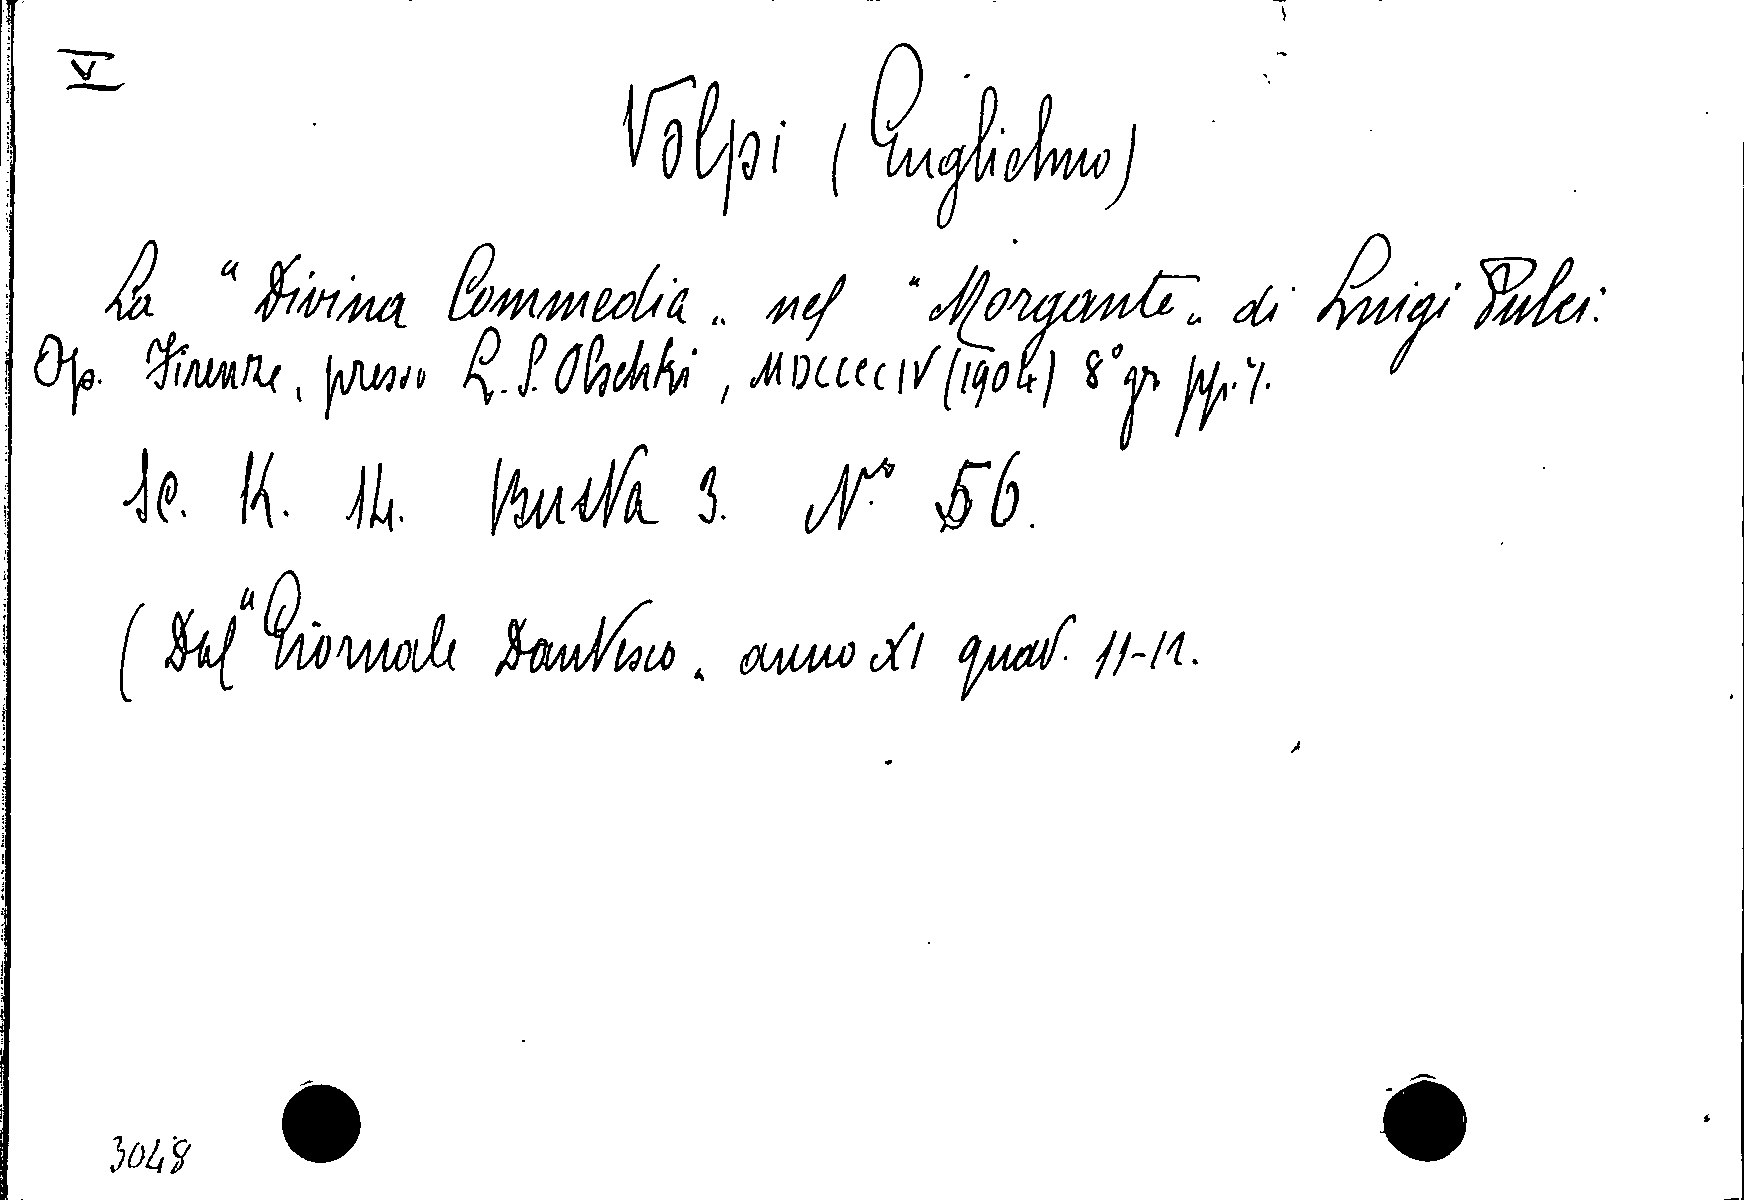 V
Volpi (Guglielmo)
La "Divina Commedia„ nel "Morgante„ di Luigi Pulci.
Op. Firenze, presso L. S. Olschki, MDCCCCIV (1904) 8° gr. pp. 7.
Sc. K. 14. Busta 3. N.° 56.
(Dal "Giornale Dantesco„ anno XI quad. 11-12.
3048